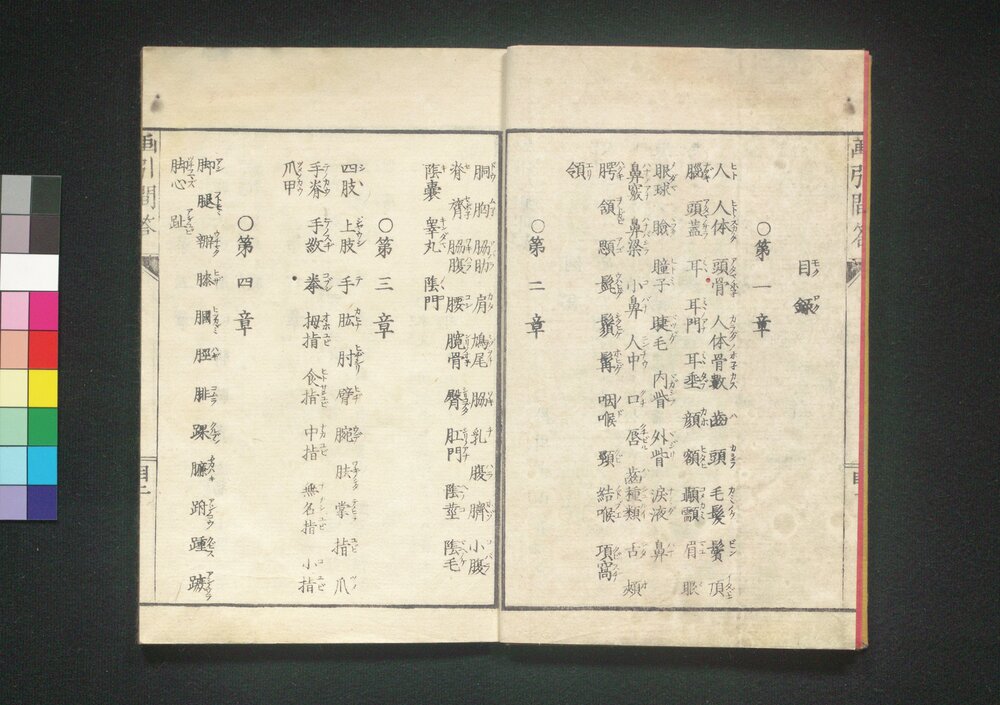 目録
〇第一章
人 人体 頭骨 人体骨数 歯 頭 毛髪 鬢 頂
脳 頭蓋 耳 耳門 耳垂 顔 額 顳顬 眉 眼
眼球 瞼 瞳子 睫毛 内眥 外眥 涙液 鼻
鼻竅 鼻梁 小鼻 人中 口 唇 歯種類 舌 頬
腭 頷 顋 髭 鬚 髯 咽喉 頸 結喉 項窩
領
〇第二章
胴 胸 脇肋 肩 鳩尾 脇 乳 腹 臍 小腹
脊 膂 脇腹 腰 髖骨 臀 肛門 陰茎 陰毛
陰嚢 睾丸 陰門
〇第三章
四肢 上肢 手 肱 肘 臂 腕 肤 掌 指 爪
手脊 手数 拳 拇指 食指 中指 無名指 小指
爪甲
〇第四章
脚 腿 膝 膕 脛 腓 踝 臁 跗 踵 跡
脚心 趾
画引問答